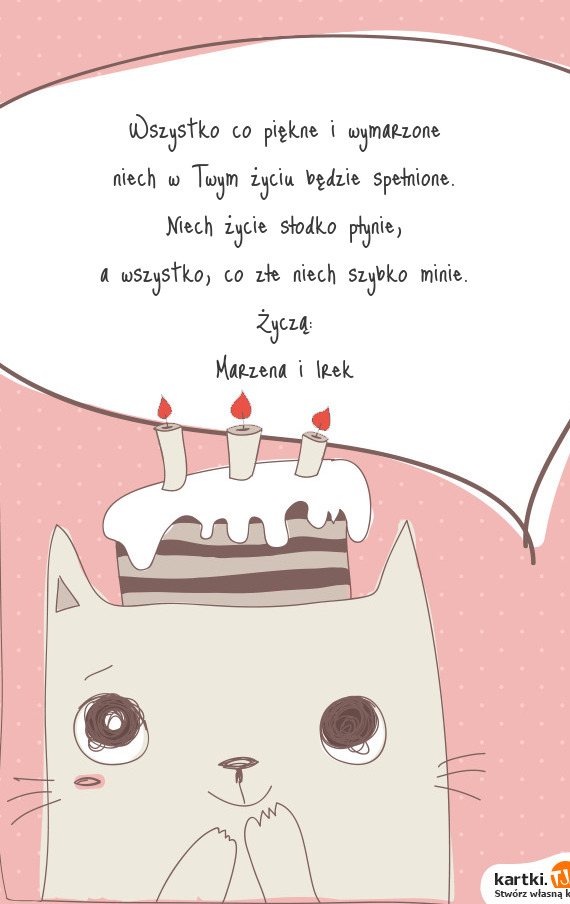 Wszystko co piękne i wymarzone
niech w Twym życiu będzie spełnione.
Niech życie słodko płynie,
a wszystko, co złe niech szybko minie.
Życzą:
Marzena i Irek
kartki.TJ
Stwórz własną k